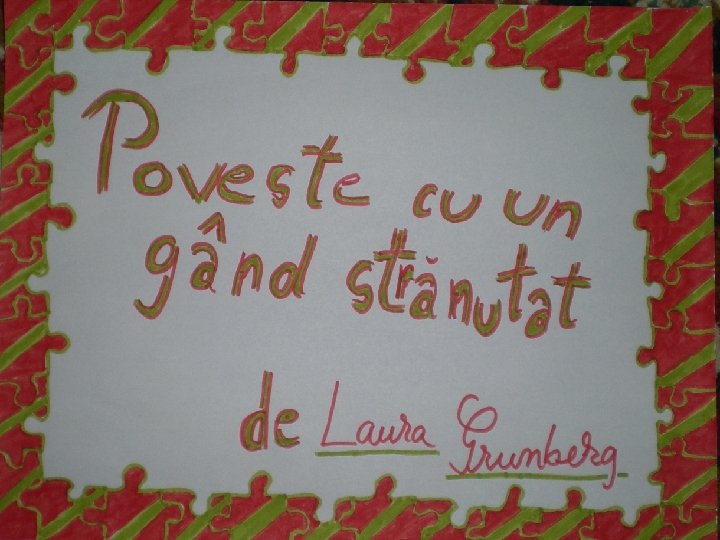 Poveste cu un
gând strănutat
de Laura Grunberg